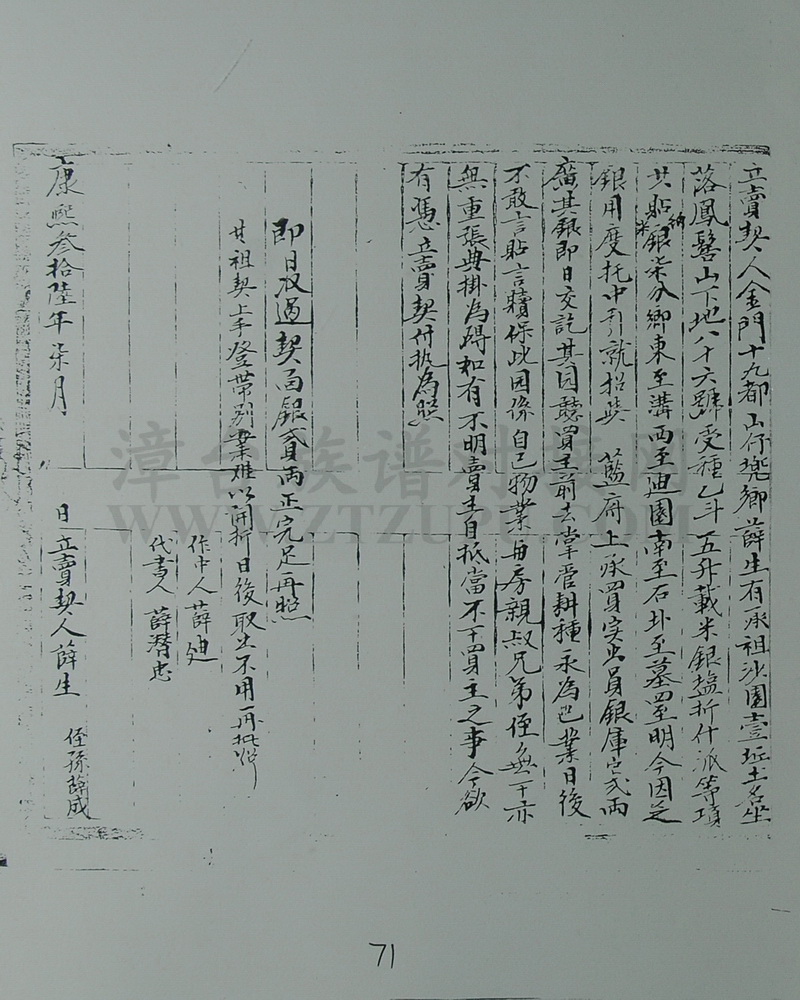 立賣契人金門十九都山仔兠鄉薛生有承祖沙園壹坵土名坐
落鳳髻山下地八十六號受種乙斗五升載米銀塩折什派等項
共貼納米銀柒分鄉東至溝西至迪園南至石北至墓四至明今因乏
銀用度托中引就招與 藍府上承買實出員銀庫它弍両
廣其銀即日交訖其园聽買主前去掌管耕種永為己業日後
不敢言貼言贖保此园係自己物業与房親叔兄弟侄無干亦
無重張典掛為碍如有不明賣主自抵當不干買主之事今欲
有憑立賣契付执為照
即日收過契面銀貳両正完足再照
其祖契上手登帶别業难以開折日後取出不用再批照
作中人薛迪
代書人薛潛忠
康熙叁拾陸年柒月 日立賣契人薛生 侄孫薛成
漳台族谱对接
WWW.ZTZUPU.COM
71